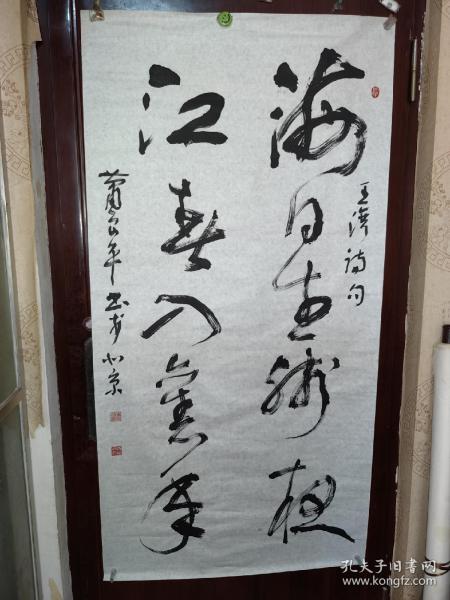 海日生残夜
王湾诗句
江春入旧年
萧良平书于北京
孔夫子旧书网
www.kongfz.com